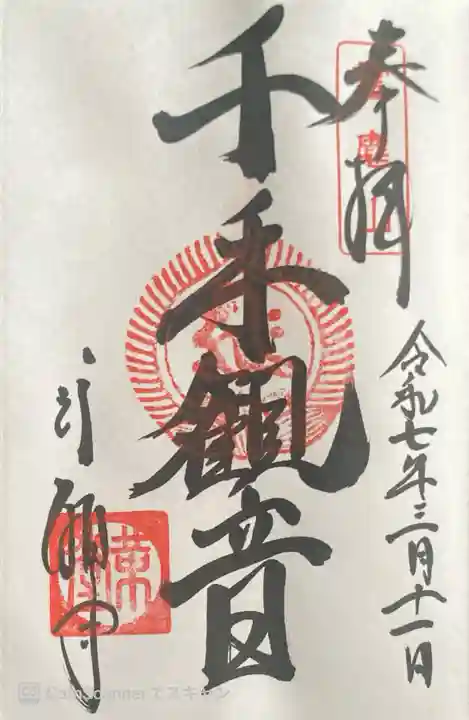 奉拝
令和七年三月十一日
千手観音
行願寺
革堂
CamScannerでスキャン